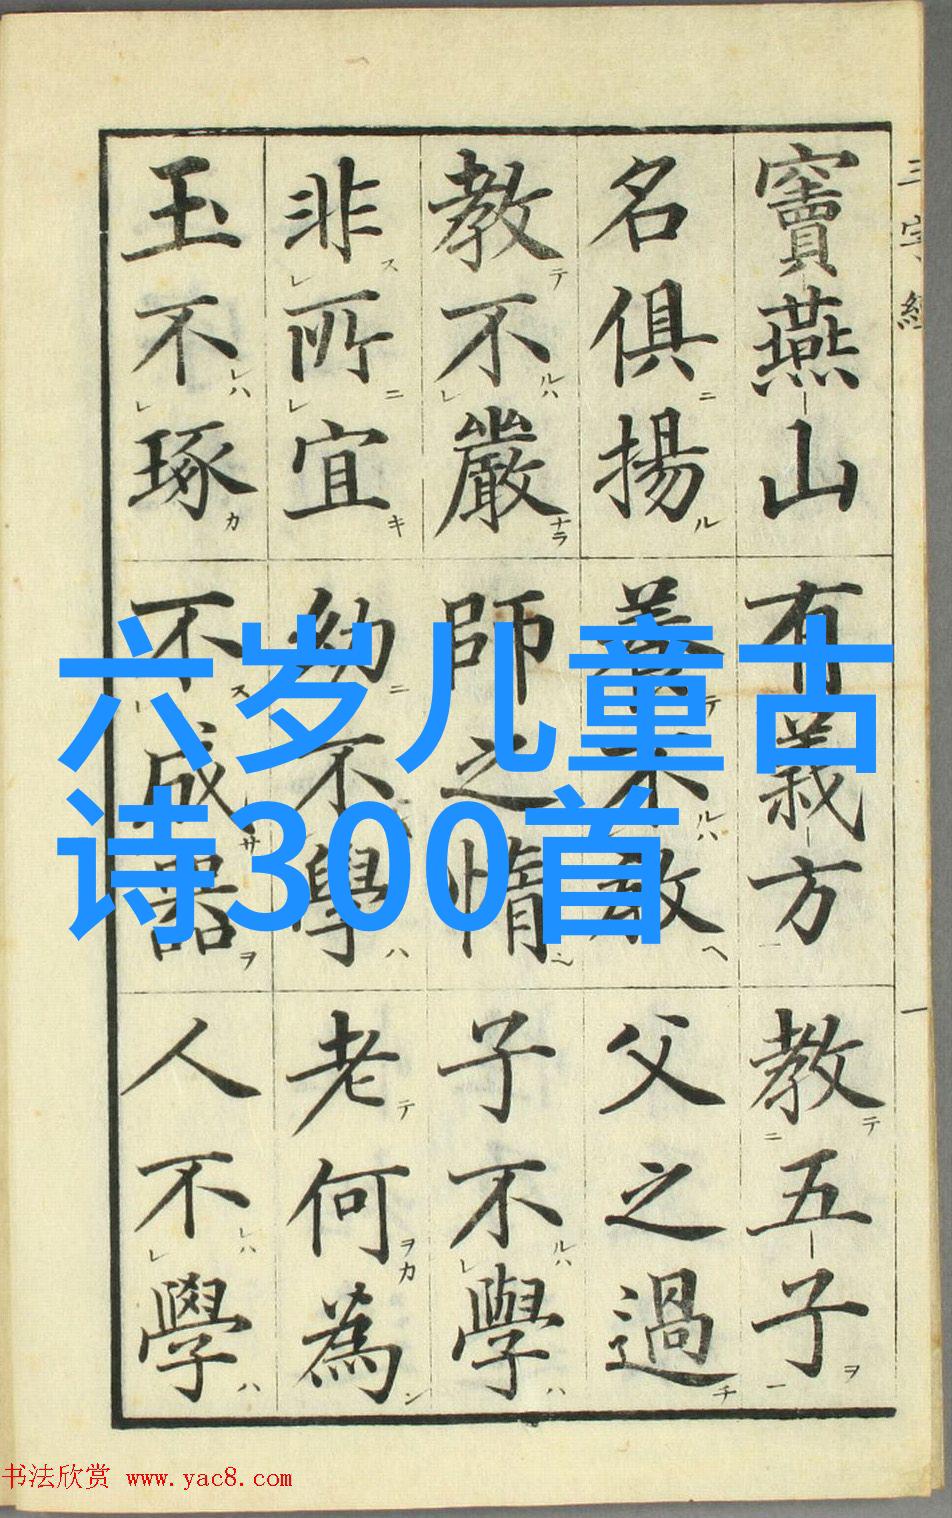 三字經 一
竇燕山有義方教五子
名俱揚養不教父之過
教不嚴師之惰子不學
非所宜幼不學老何為
玉不琢不成器人不學
六岁儿童古
诗300首
书法欣赏 www.yac8.com